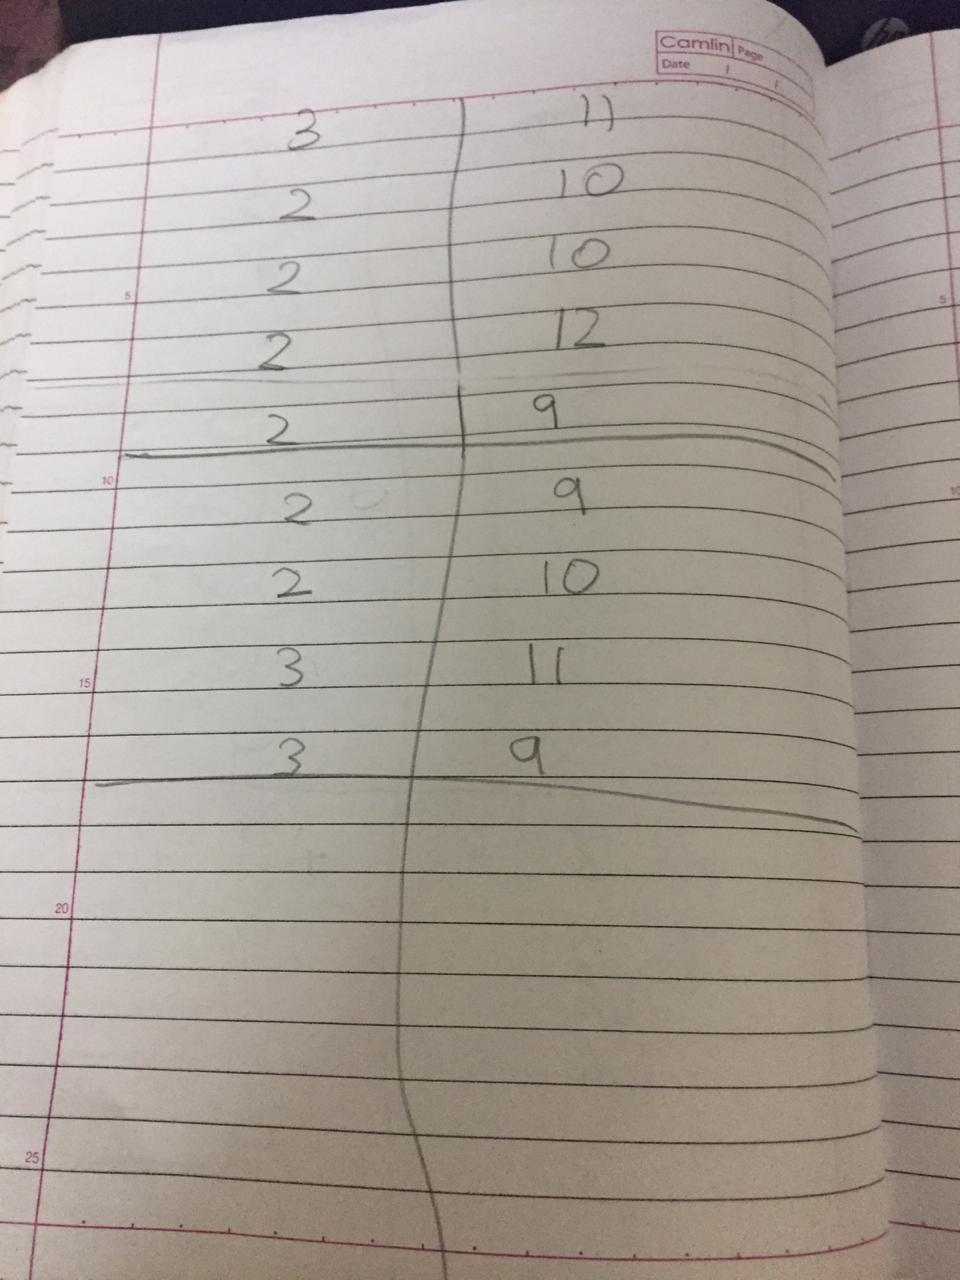 Camlin Page
Date / /
3 11
2 10
2 10
5
2 12
2 9
10
2 9
2 10
3 11
15
3 9
20
25
5